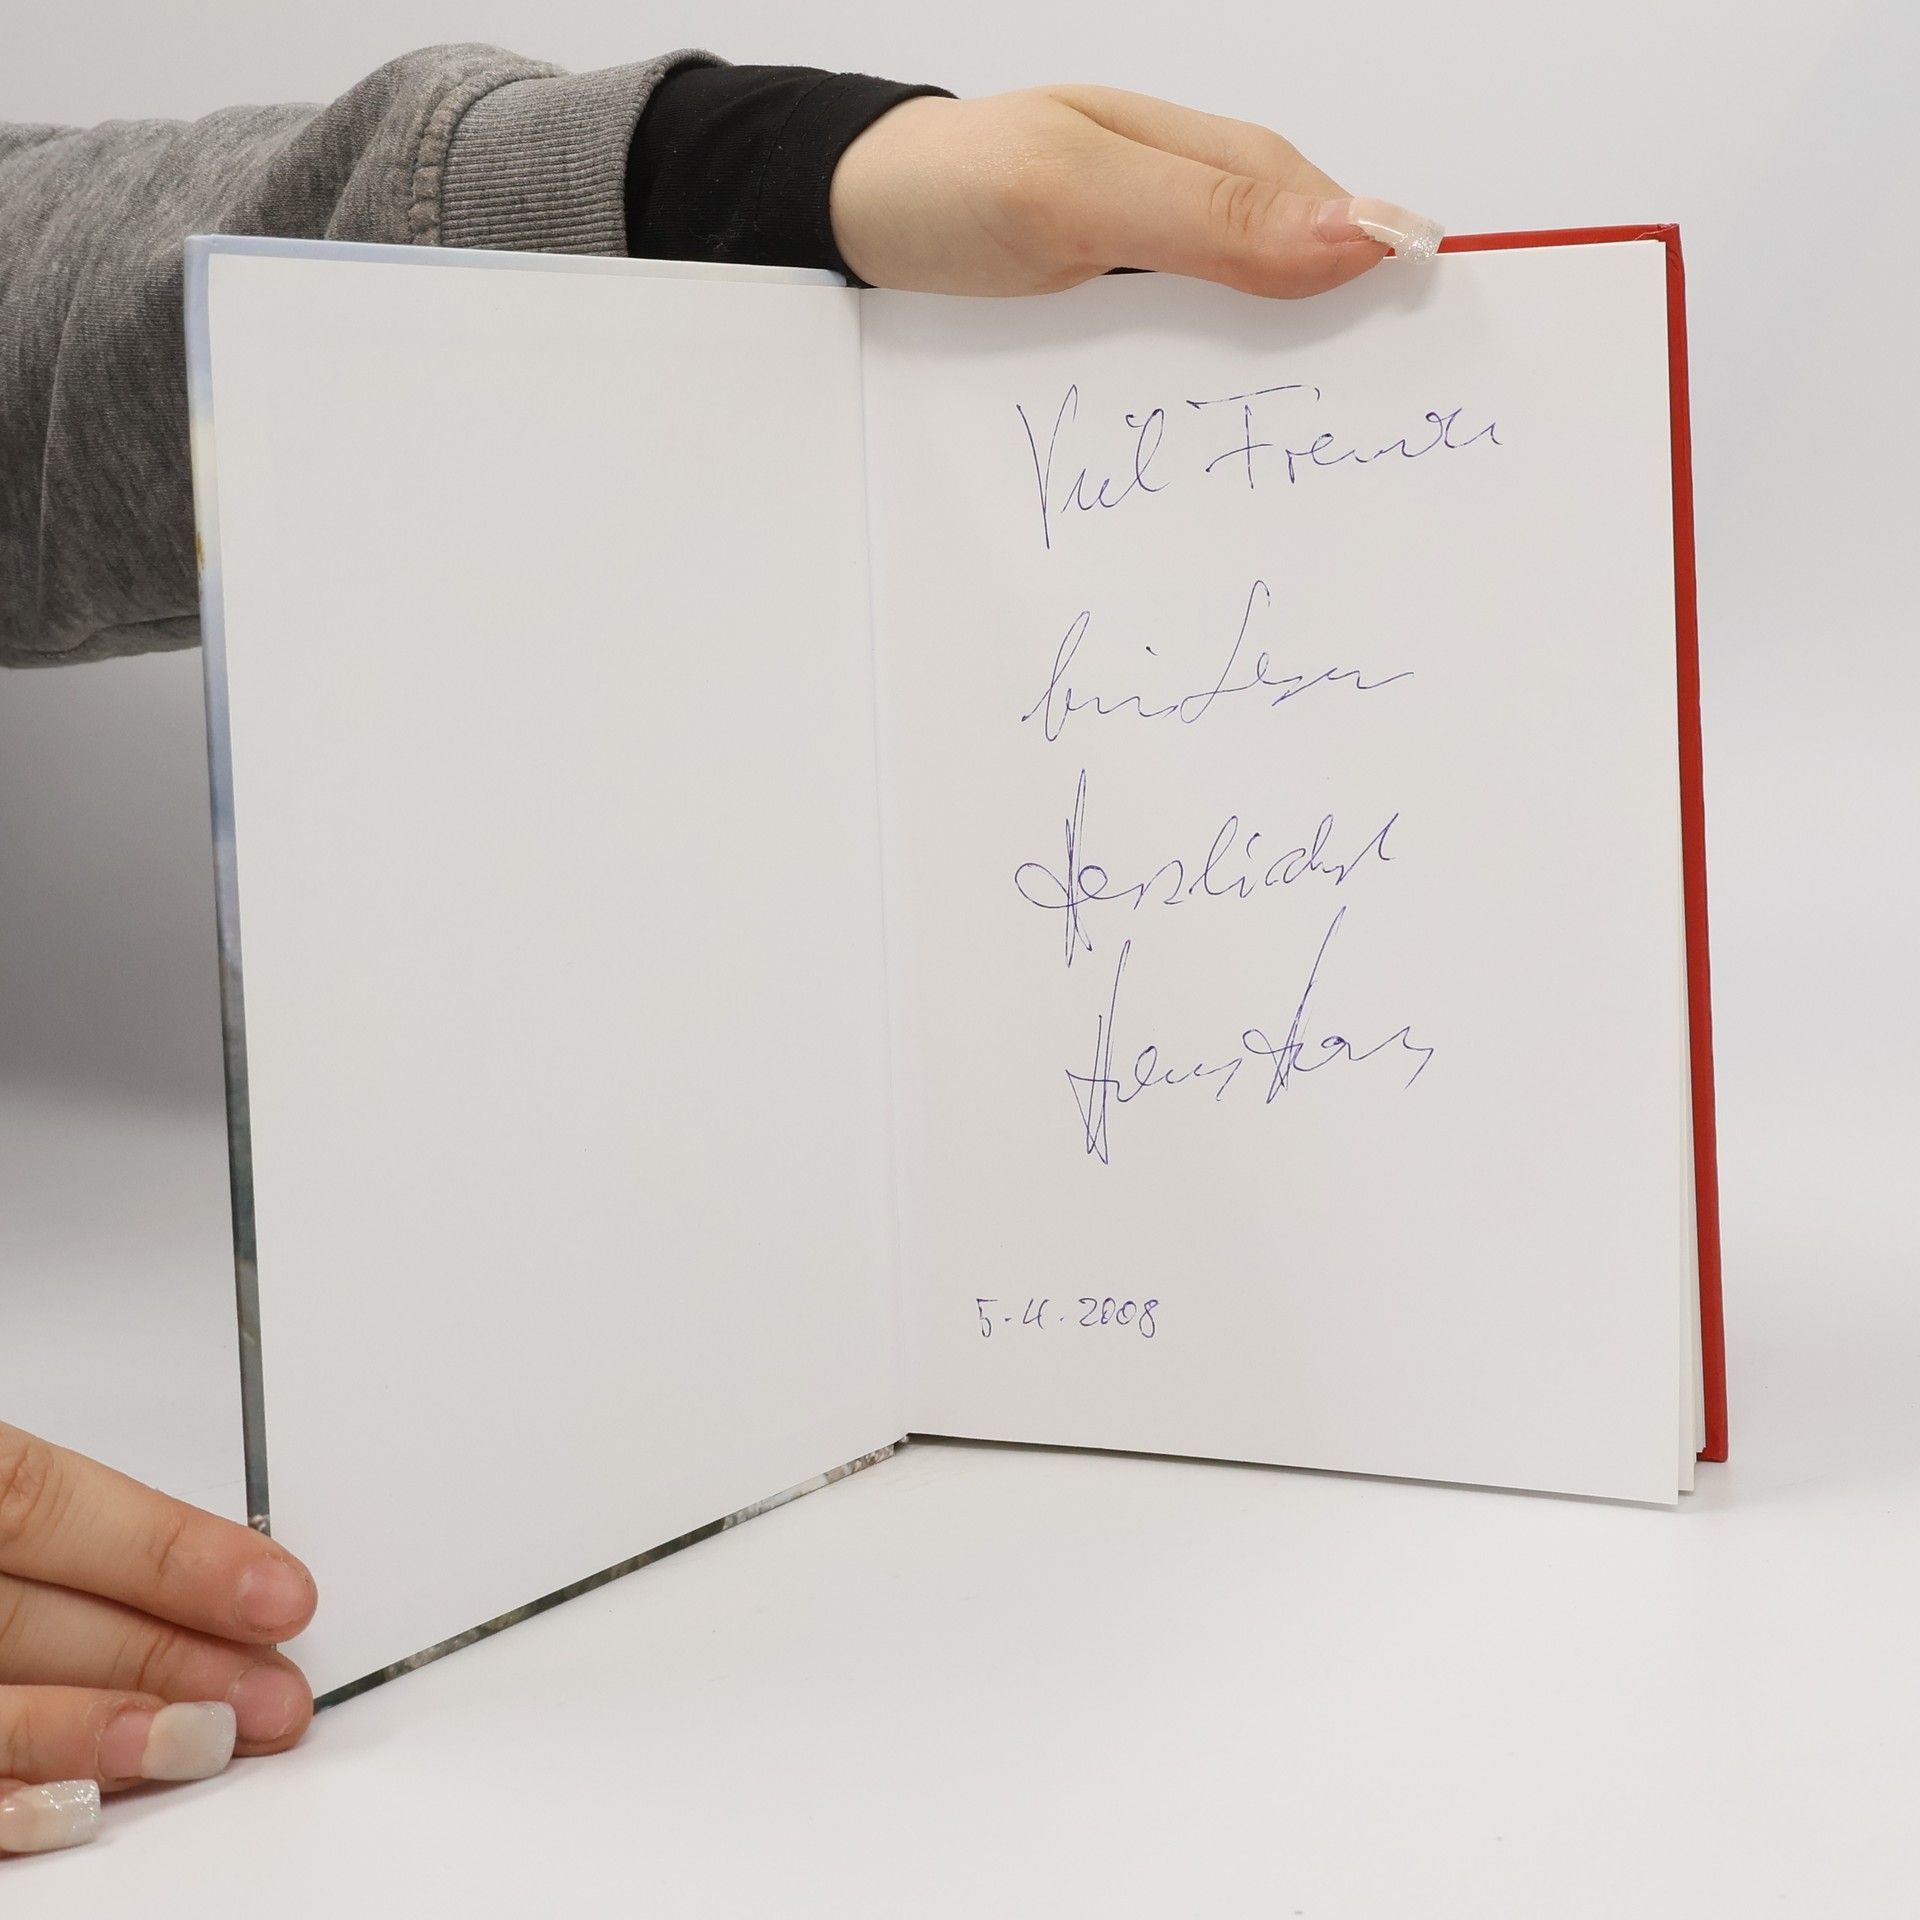 Viel Freude
beim Lesen
Herzlichst
5.4.2008